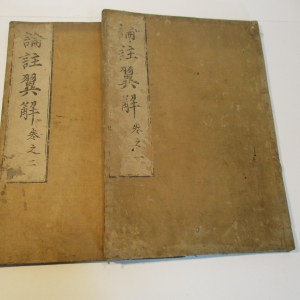 論註翼解 卷之一
論註翼解 卷之二